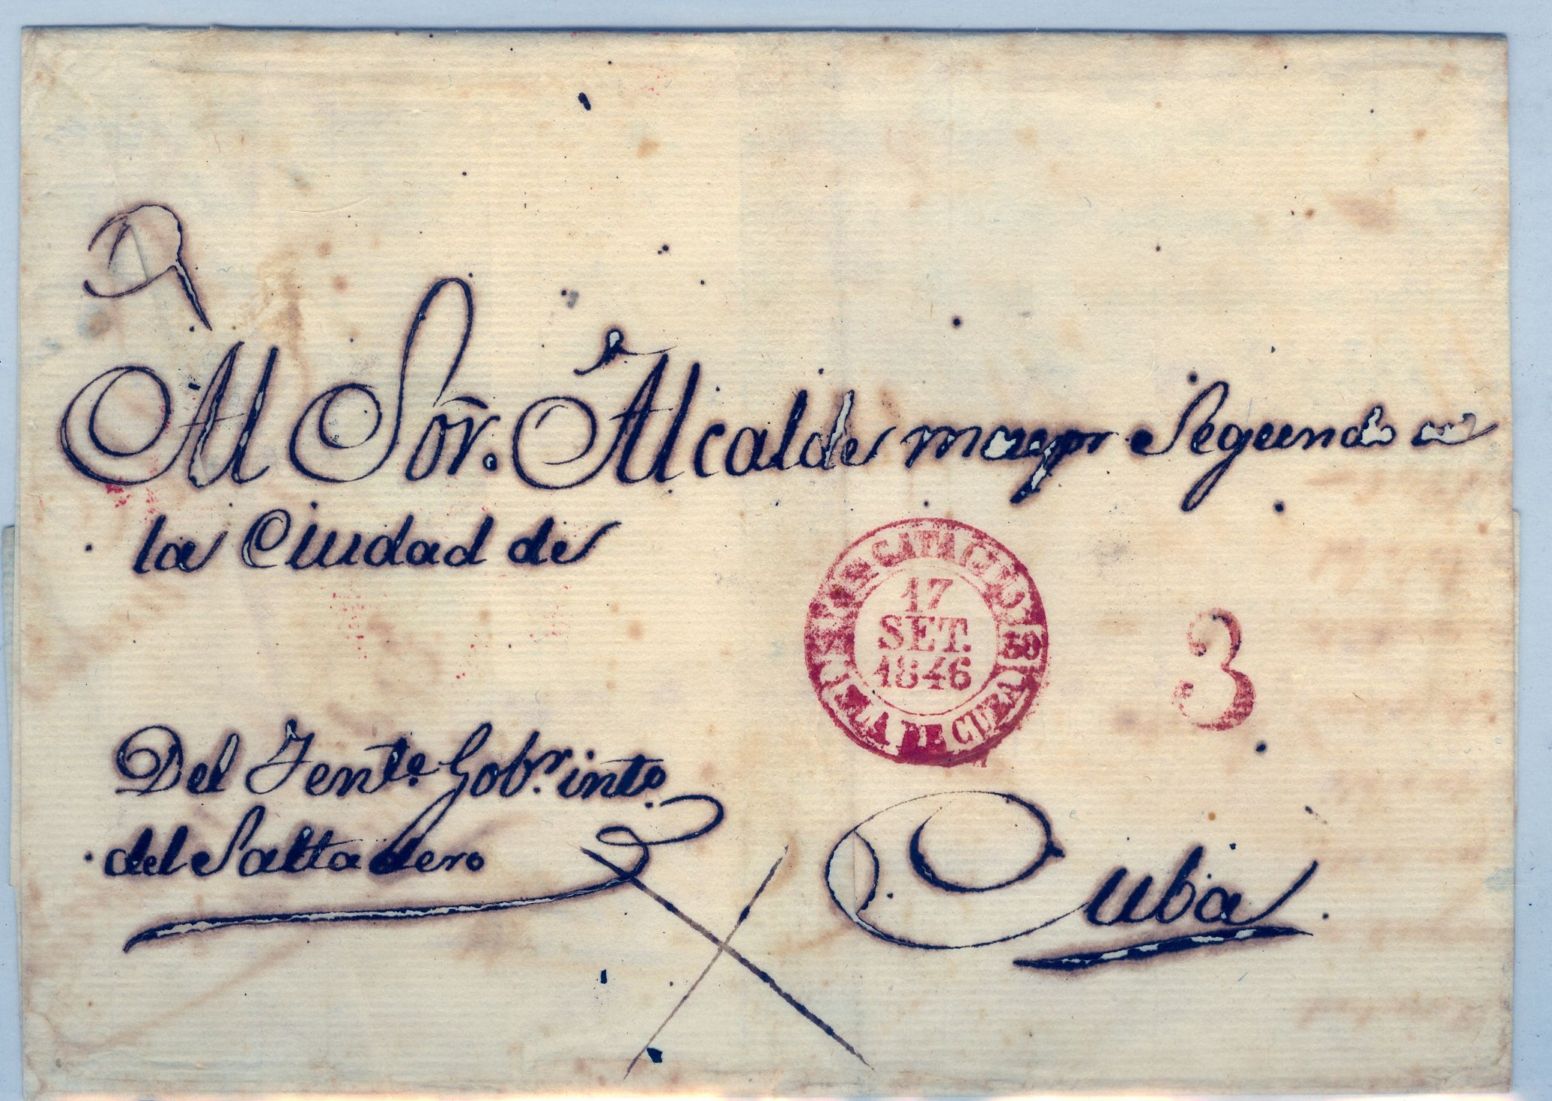 Al Sor. Alcalde mayor Segundo de
la Ciudad de
17
SET.
1846
ISLA DE CUBA
3
Del Tente. Gobr. into.
del Saltadero
Cuba